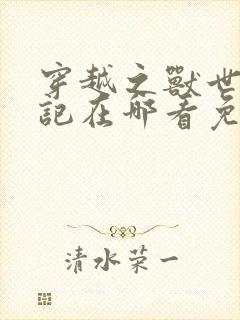 穿越之獸世
記在哪看免
清水荣一